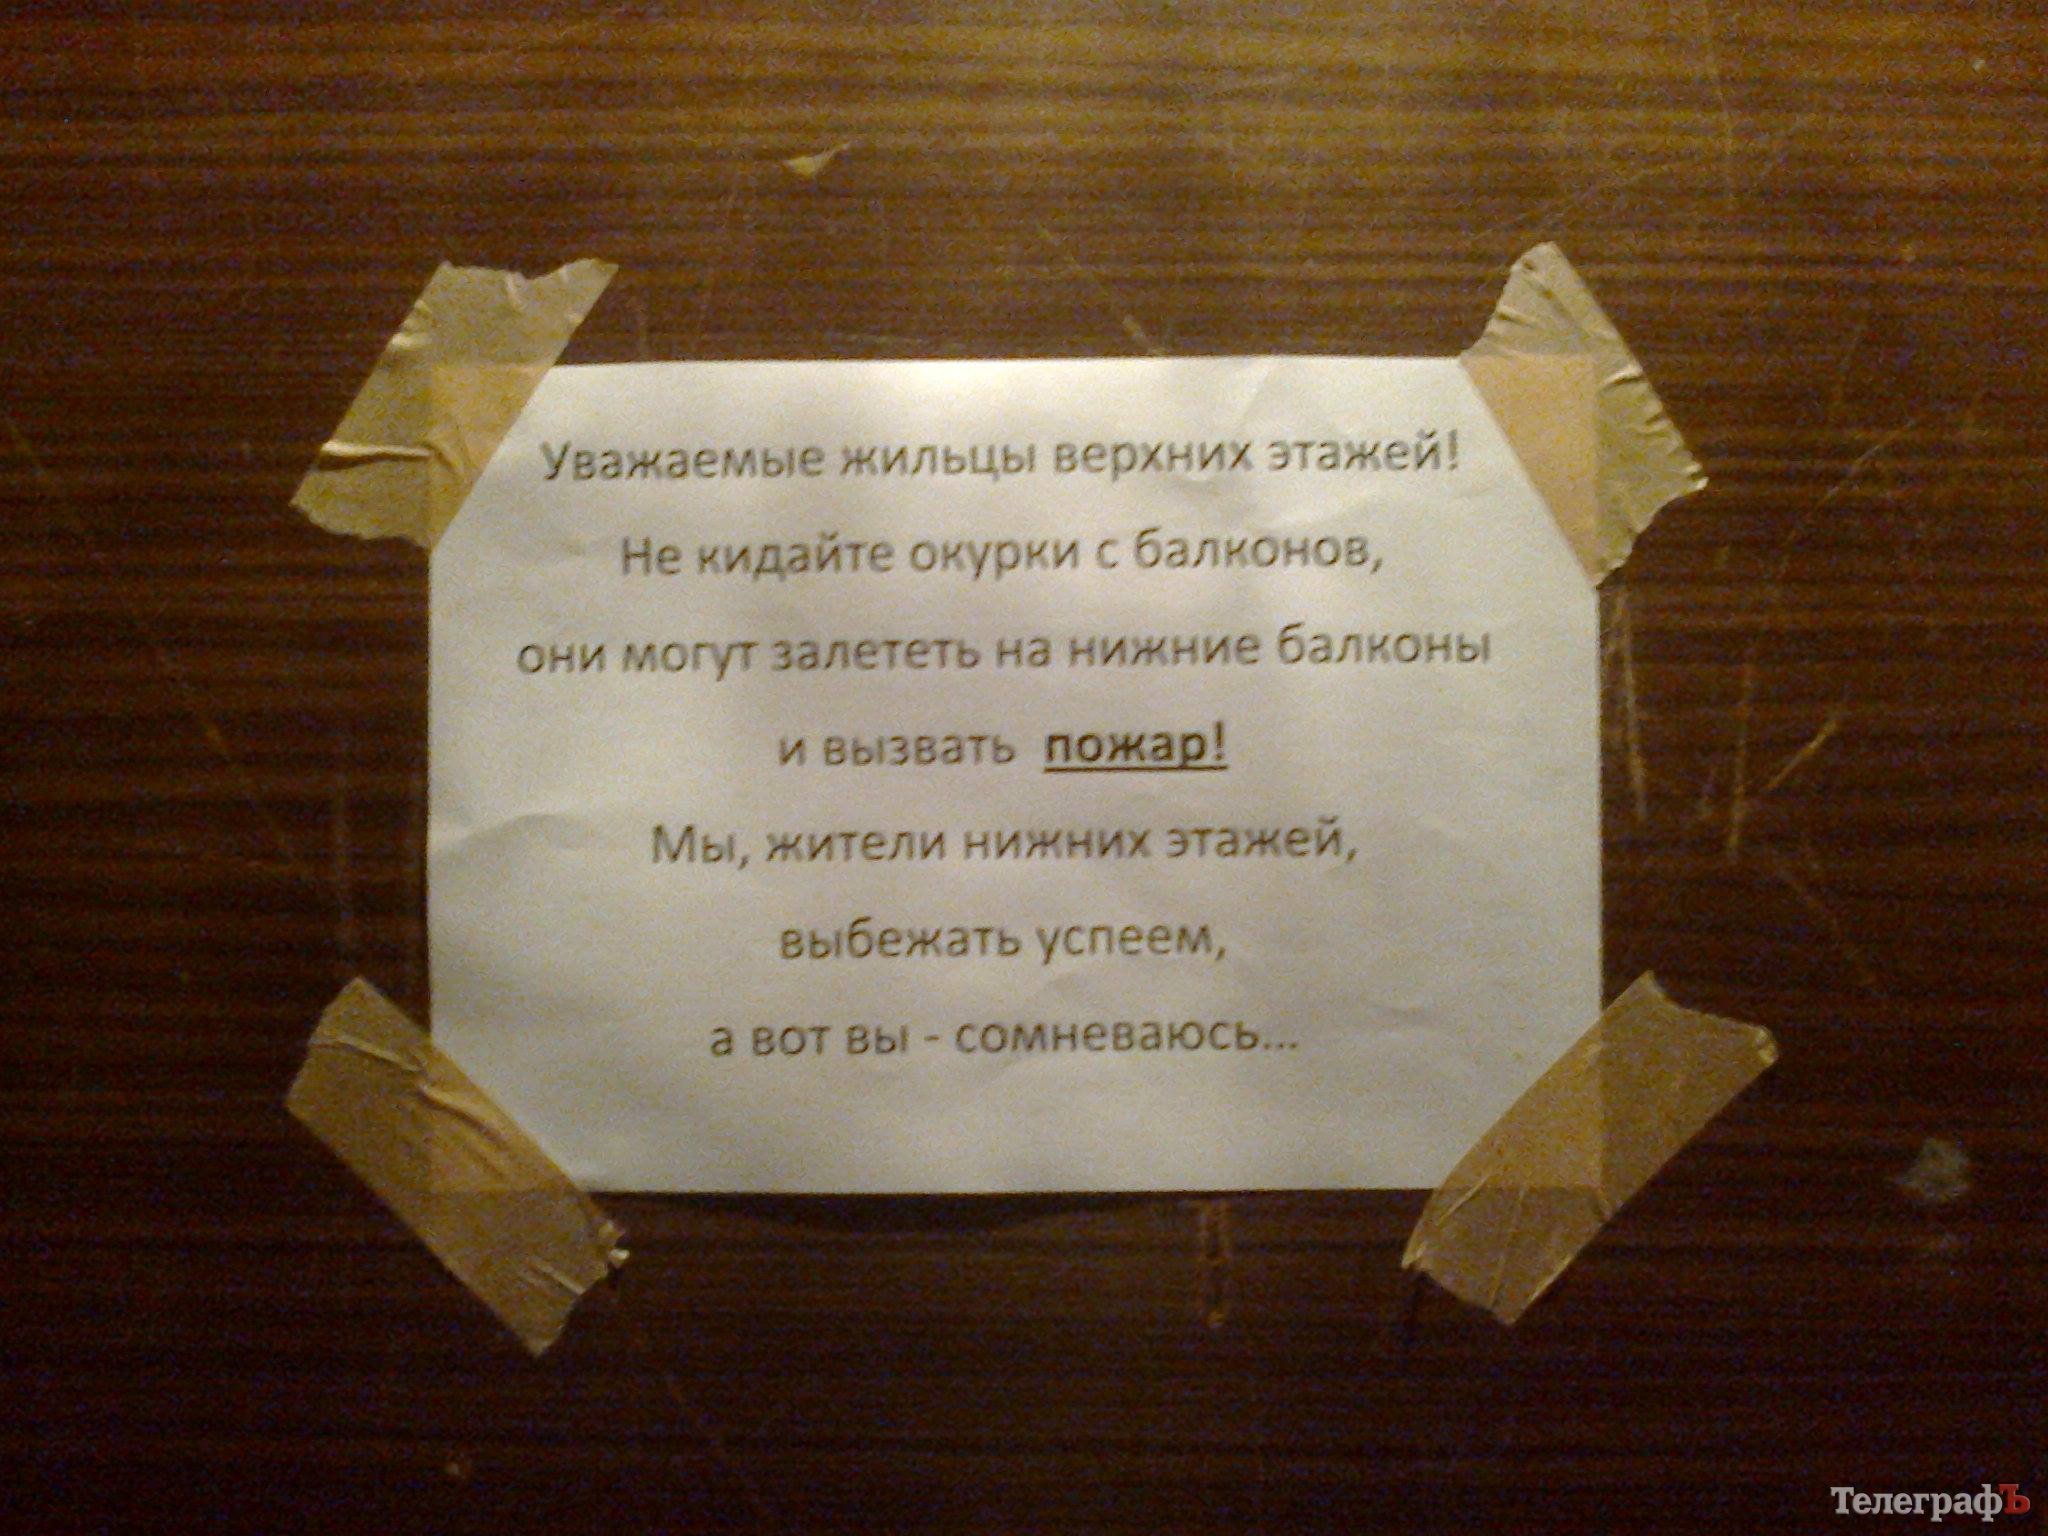 Уважаемые жильцы верхних этажей!
Не кидайте окурки с балконов,
они могут залететь на нижние балконы
и вызвать пожар!
Мы, жители нижних этажей,
выбежать успеем,
а вот вы - сомневаюсь...
ТелеграфЪ